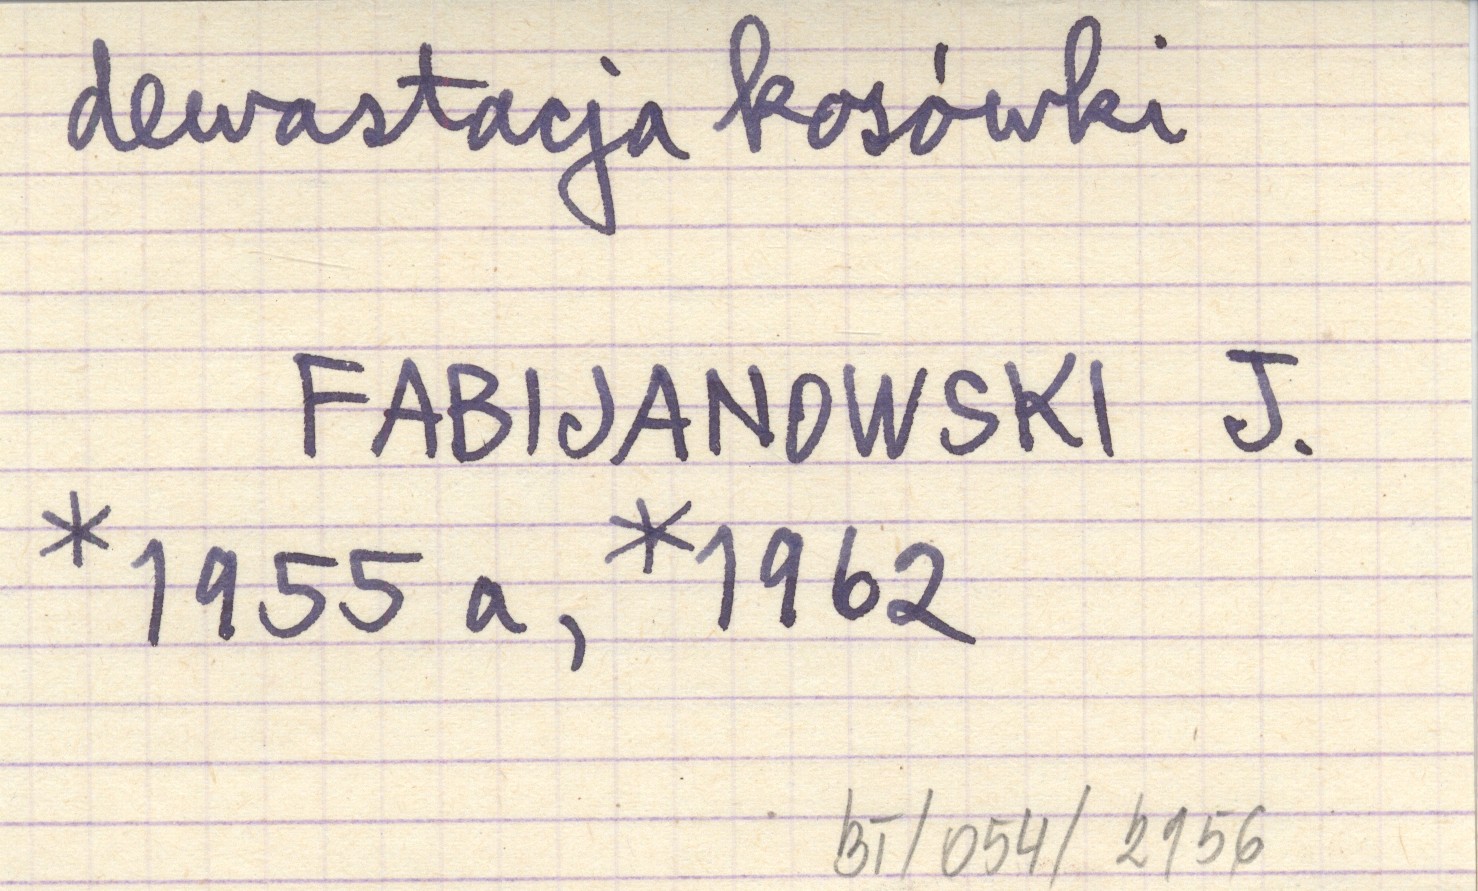 dewastacja kosówki
FABIJANOWSKI J.
*1955 a, *1962
BT/054/2956